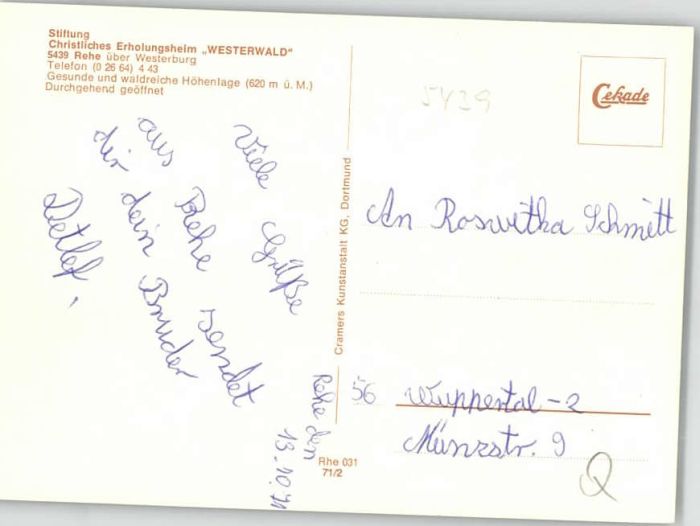 Stiftung
Christliches Erholungsheim „WESTERWALD"
5439 Rehe über Westerburg
Telefon (0 26 64) 4 43
Gesunde und waldreiche Höhenlage (620 m ü. M.)
Durchgehend geöffnet
Viele Grüße
aus Rehe sendet
dir dein Bruder
Detlef.
Rehe den
13.10.71
Cramers Kunstanstalt KG. Dortmund
Rhe 031
71/2
5439
Cekade
An Roswitha Schmitt
56 Wuppertal-2
Münzstr. 9
Q